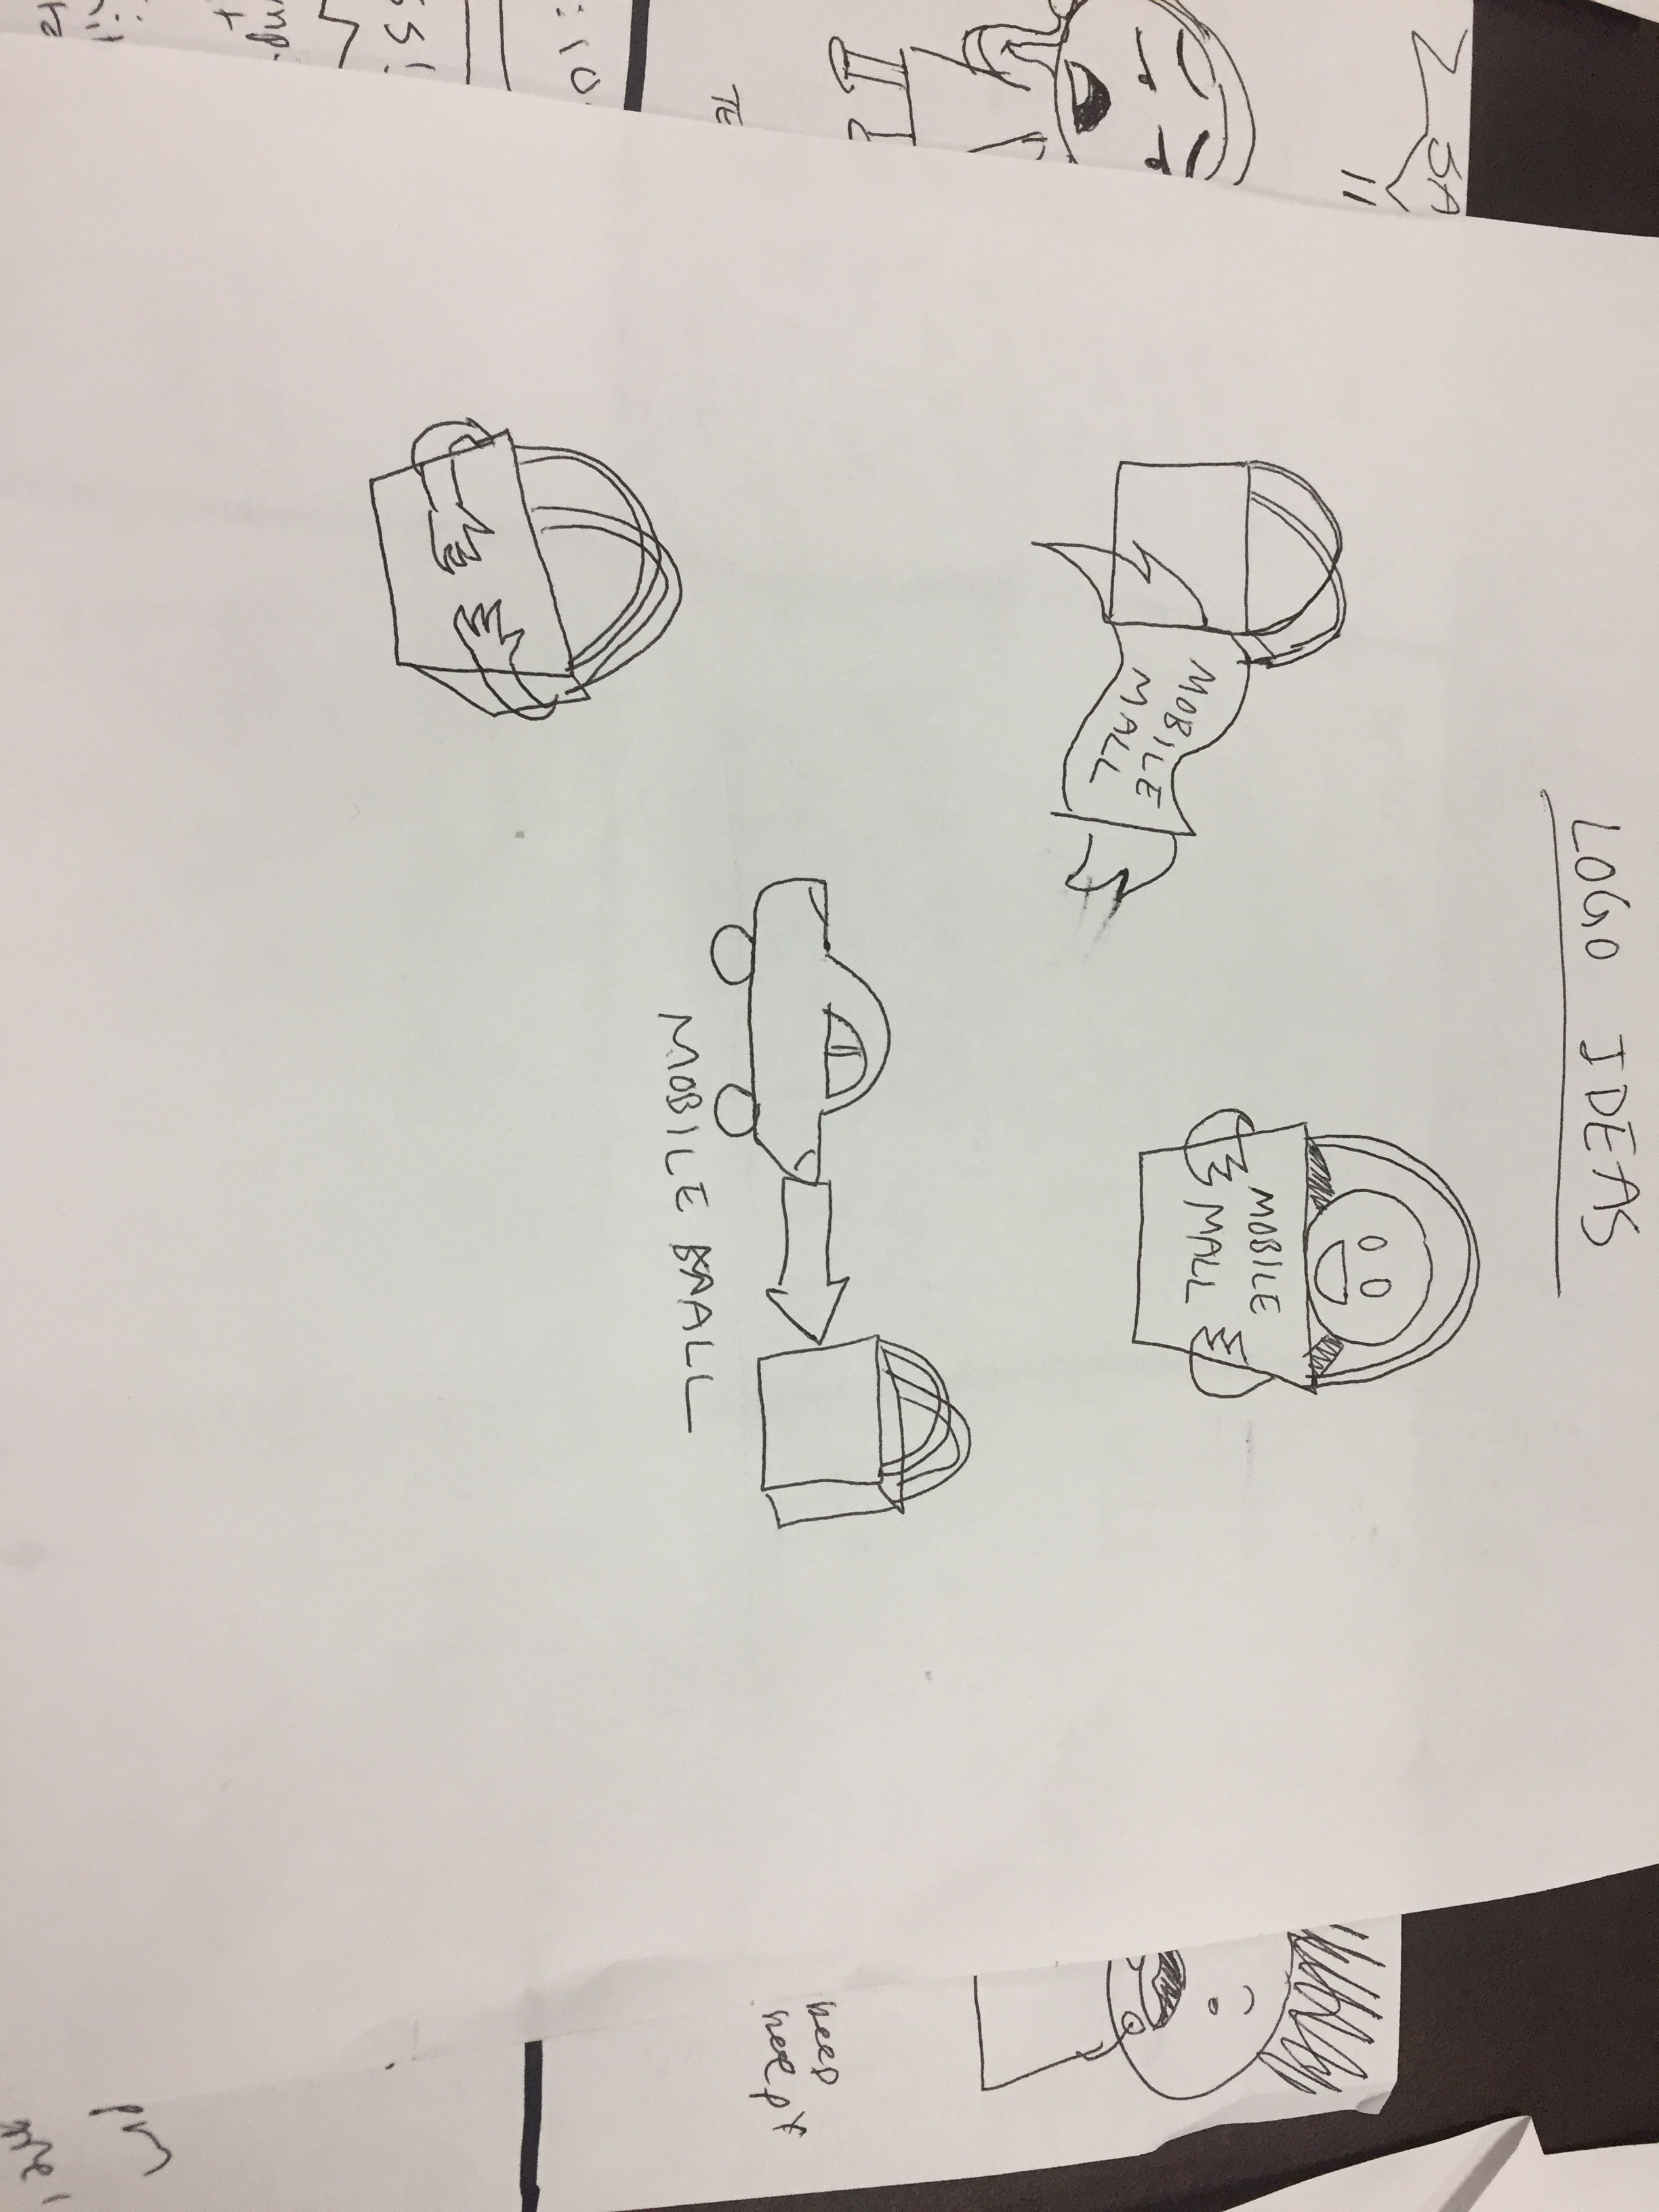 LOGO IDEAS
MOBILE
MALL
MOBILE
MALL
MOBILE MALL
SA
TE
:10
is